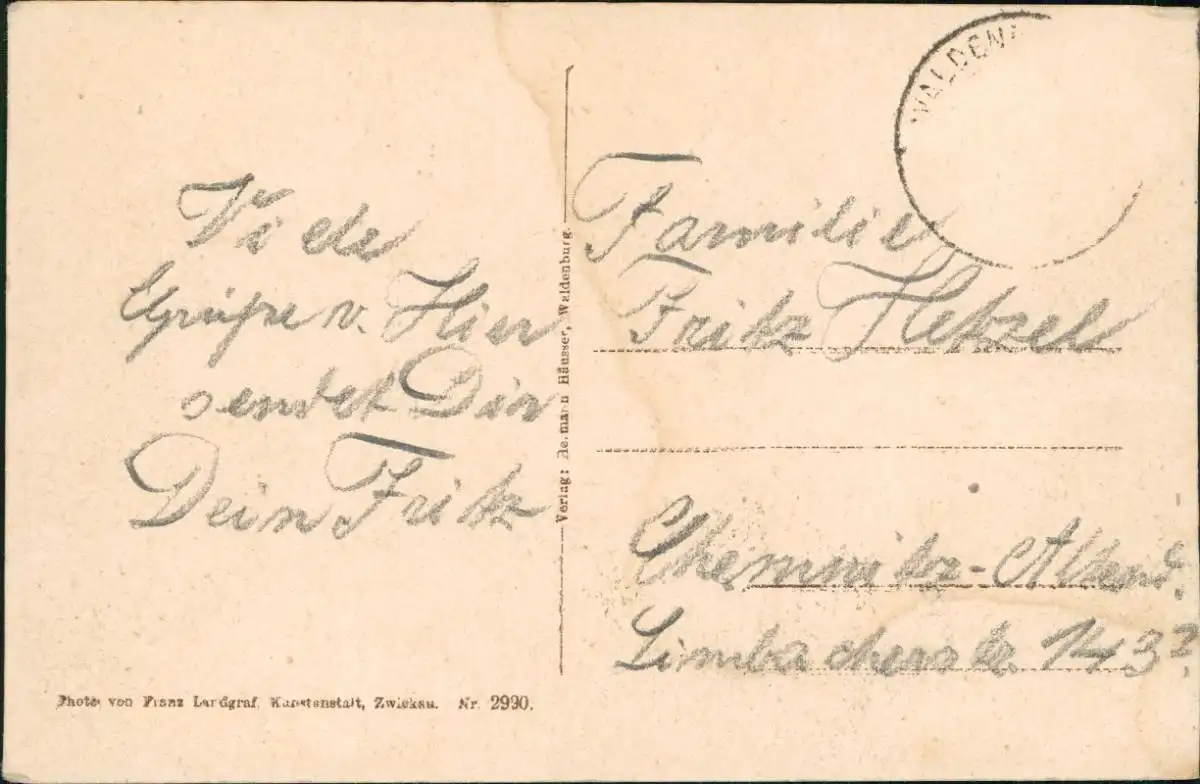 Viele
Grüße v. Hier
sendet Dir
Dein Fritz
Photo von Franz Landgraf, Kunstanstalt, Zwickau. Nr. 2990.
Verlag: Hermann Häusser, Waldenburg.
WALDENB
Familie
Fritz Hetzel
Chemnitz-Altend.
Limbacherstr. 143